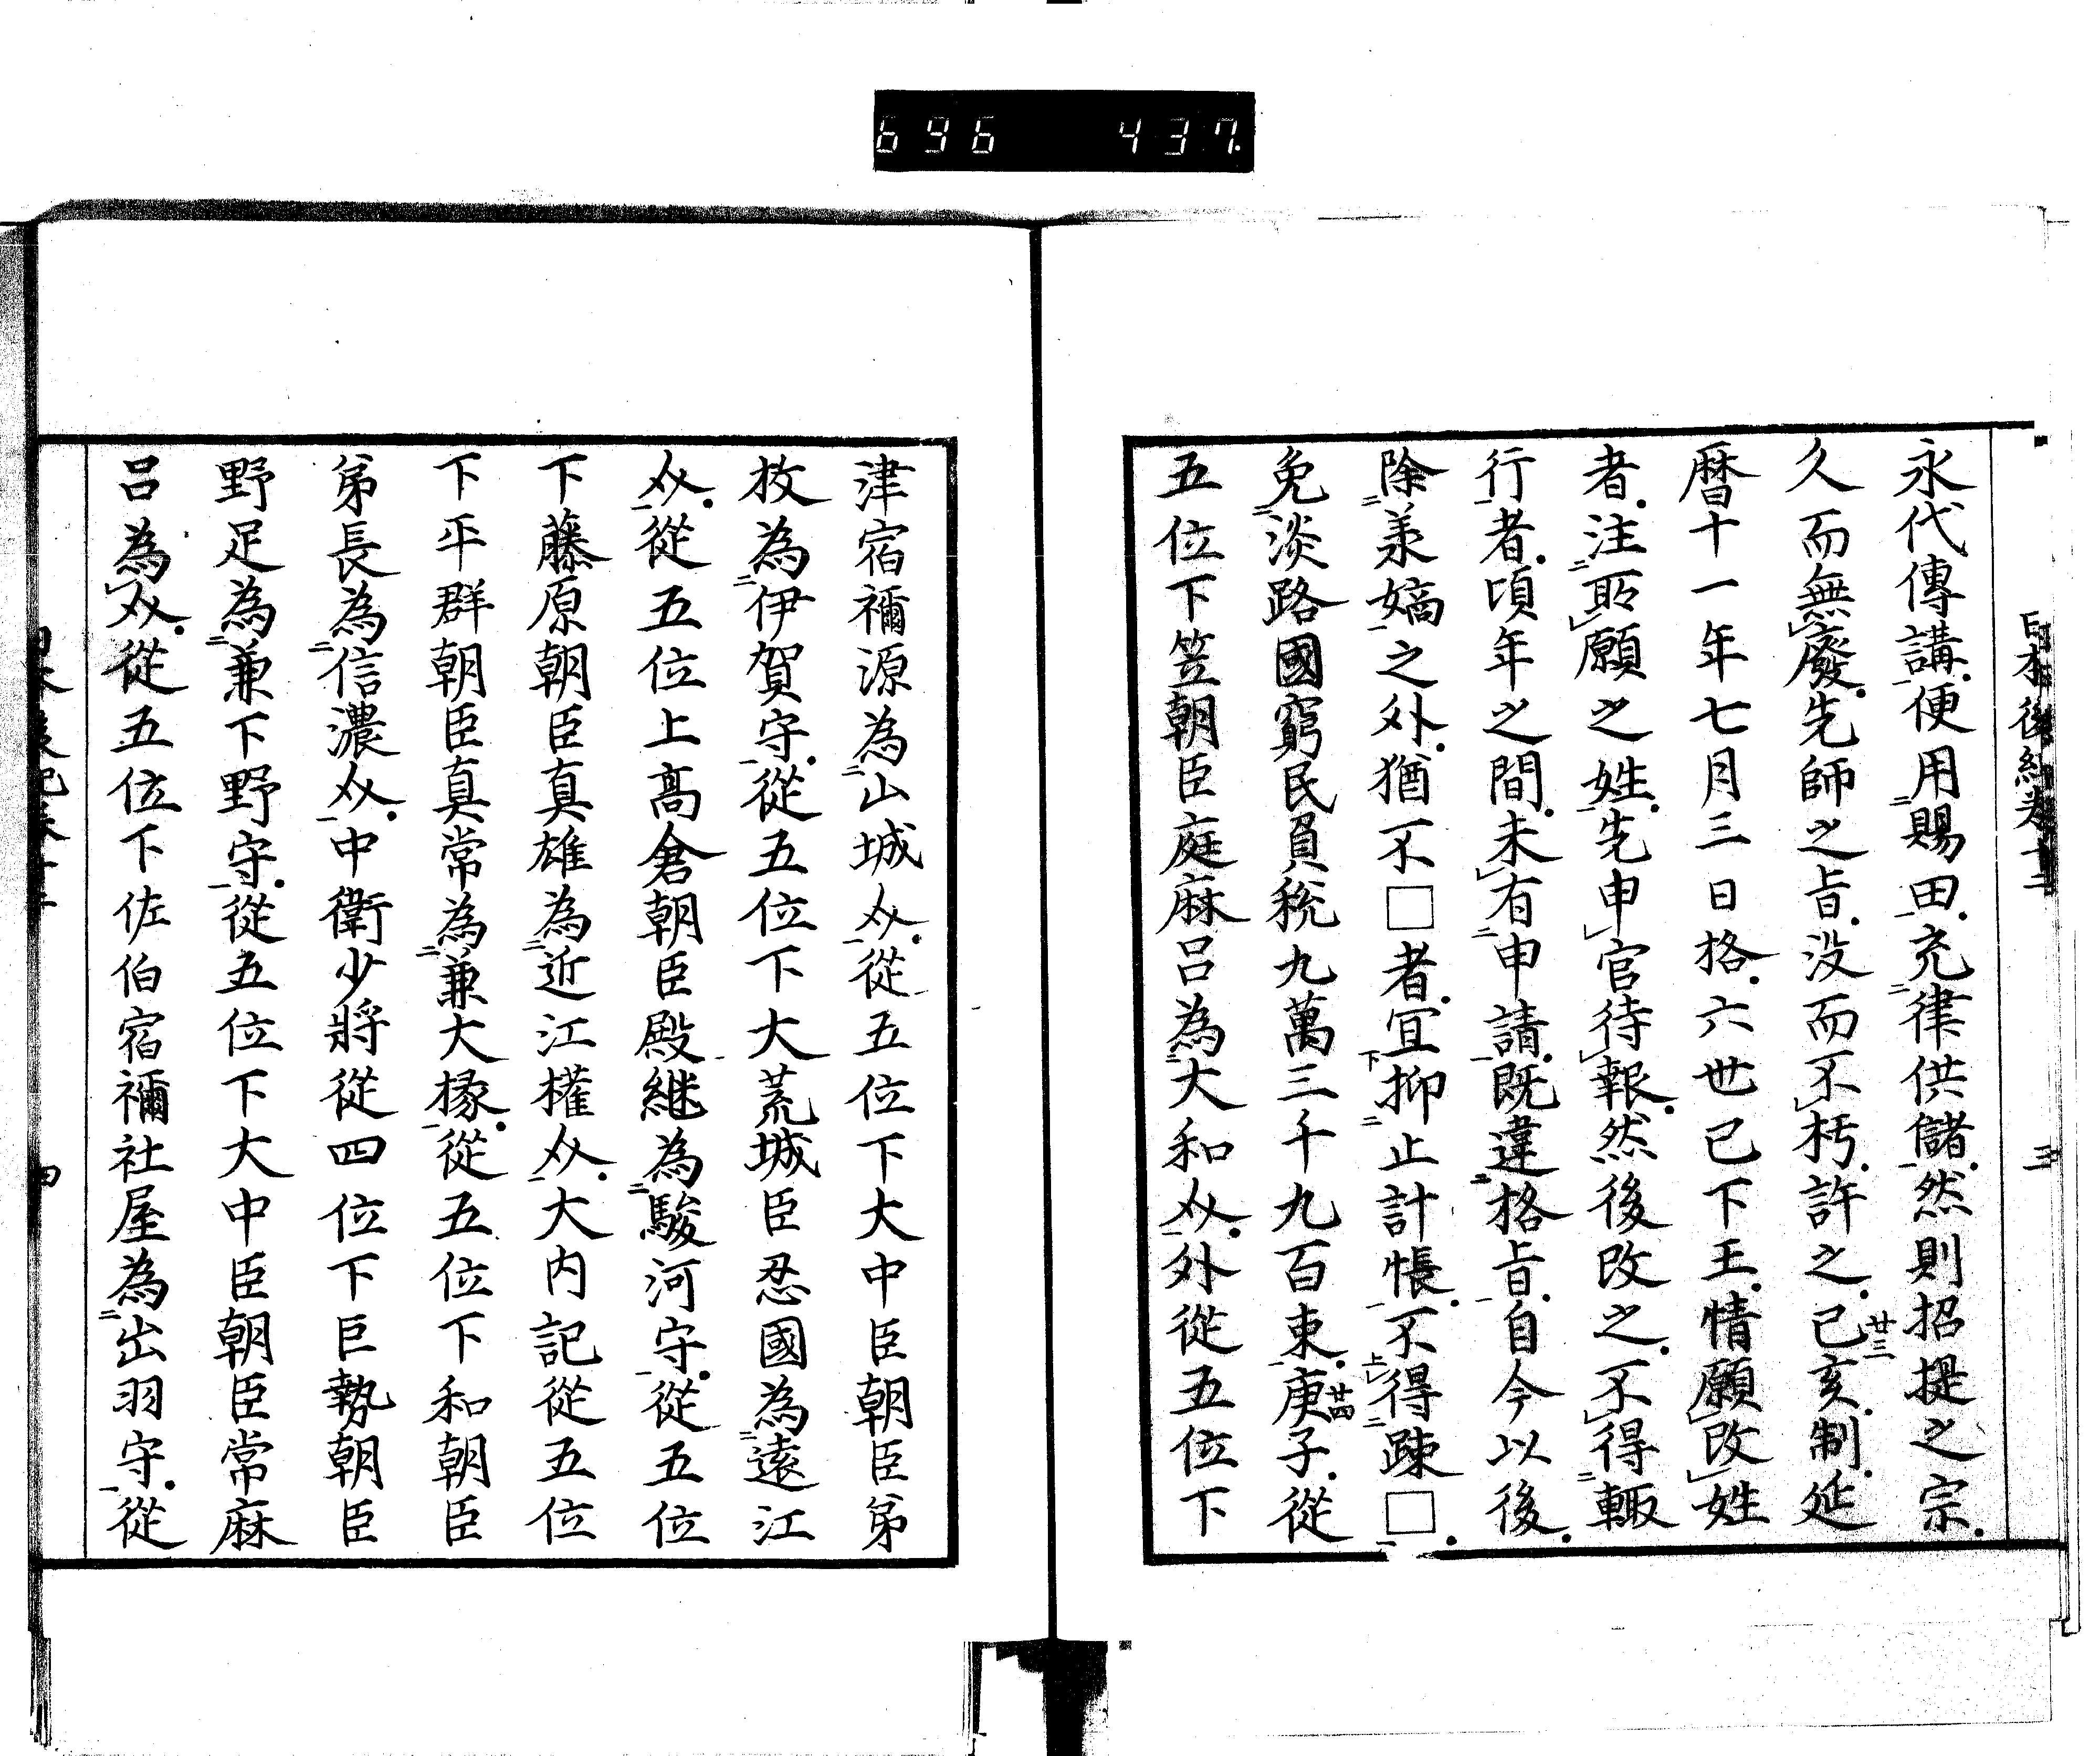 696 437
日本後紀卷十二 三
永代傳講便用賜田充律供儲然則招提之宗
久而無廢先師之旨没而不朽許之己亥廿三制延
曆十一年七月三日格六世已下王情願改姓
者注所願之姓先申官待報然後改之不得輙
行者頃年之間未有申請既違格旨自今以後
除承嫡之外猶不□者宜抑止計帳不得疎□
免淡路國窮民負税九萬三千九百束庚子廿四從
五位下笠朝臣庭麻呂為大和介外從五位下
津宿禰源為山城介從五位下大中臣朝臣第
枚為伊賀守從五位下大荒城臣忍國為遠江
介從五位上高倉朝臣殿継為駿河守從五位
下藤原朝臣真雄為近江權介大内記從五位
下平群朝臣真常為兼大掾從五位下和朝臣
第長為信濃介中衛少將從四位下巨勢朝臣
野足為兼下野守從五位下大中臣朝臣常麻
呂為介從五位下佐伯宿禰社屋為出羽守從
四